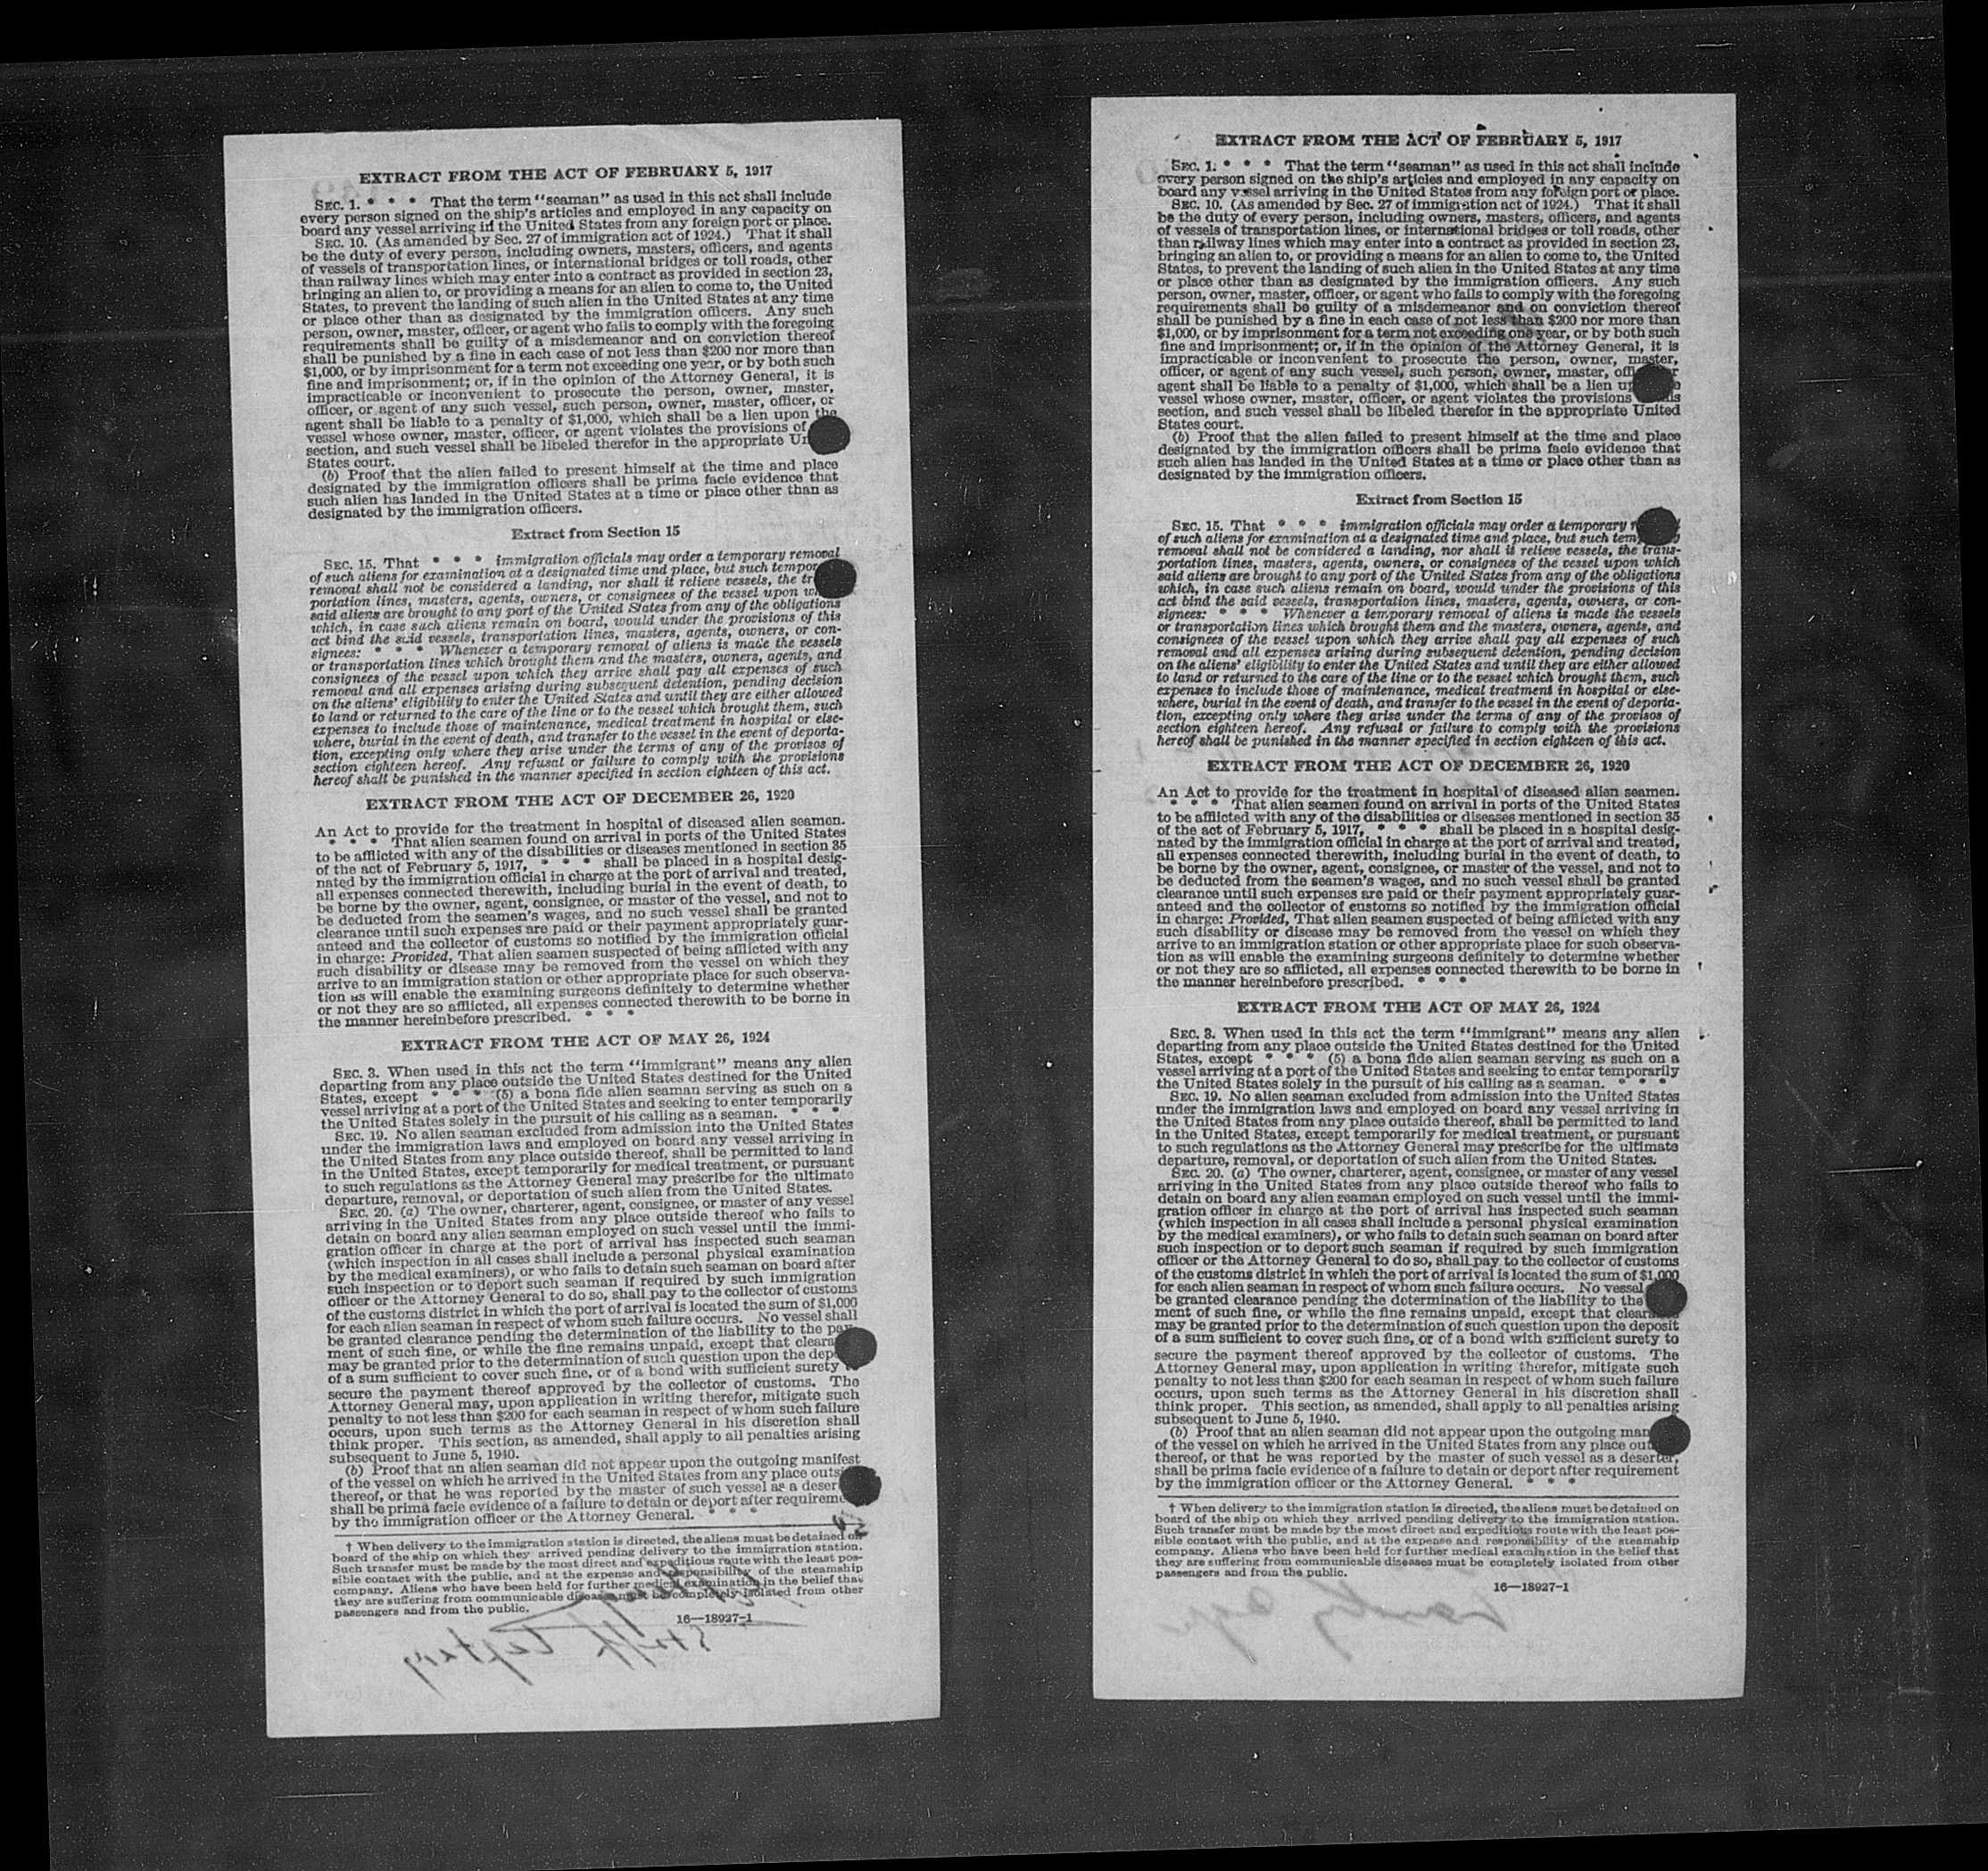 EXTRACT FROM THE ACT OF FEBRUARY 5, 1917
SEC. 1. * * * That the term "seaman" as used in this act shall include
every person signed on the ship's articles and employed in any capacity on
board any vessel arriving in the United States from any foreign port or place.
SEC. 10. (As amended by Sec. 27 of immigration act of 1924.) That it shall
be the duty of every person, including owners, masters, officers, and agents
of vessels of transportation lines, or international bridges or toll roads, other
than railway lines which may enter into a contract as provided in section 23,
bringing an alien to, or providing a means for an alien to come to, the United
States, to prevent the landing of such alien in the United States at any time
or place other than as designated by the immigration officers. Any such
person, owner, master, officer, or agent who fails to comply with the foregoing
requirements shall be guilty of a misdemeanor and on conviction thereof
shall be punished by a fine in each case of not less than $200 nor more than
$1,000, or by imprisonment for a term not exceeding one year, or by both such
fine and imprisonment; or, if in the opinion of the Attorney General, it is
impracticable or inconvenient to prosecute the person, owner, master,
officer, or agent of any such vessel, such person, owner, master, officer, or
agent shall be liable to a penalty of $1,000, which shall be a lien upon the
vessel whose owner, master, officer, or agent violates the provisions of
section, and such vessel shall be libeled therefor in the appropriate
States court.
(b) Proof that the alien failed to present himself at the time and place
designated by the immigration officers shall be prima facie evidence that
such alien has landed in the United States at a time or place other than as
designated by the immigration officers.
Extract from Section 15
SEC. 15. That * * * immigration officials may order a temporary removal
of such aliens for examination at a designated time and place, but such
removal shall not be considered a landing, nor shall it relieve vessels, the
portation lines, masters, agents, owners, or consignees of the vessel upon
said aliens are brought to any port of the United States from any of the obligations
which, in case such aliens remain on board, would under the provisions of this
act bind the said vessels, transportation lines, masters, agents, owners, or con-
signees: * * * Whenever a temporary removal of aliens is made the vessels
or transportation lines which brought them and the masters, owners, agents, and
consignees of the vessel upon which they arrive shall pay all expenses of such
removal and all expenses arising during subsequent detention, pending decision
on the aliens' eligibility to enter the United States and until they are either allowed
to land or returned to the care of the line or to the vessel which brought them, such
expenses to include those of maintenance, medical treatment in hospital or else-
where, burial in the event of death, and transfer to the vessel in the event of deporta-
tion, excepting only where they arise under the terms of any of the provisos of
section eighteen hereof. Any refusal or failure to comply with the provisions
hereof shall be punished in the manner specified in section eighteen of this act.
EXTRACT FROM THE ACT OF DECEMBER 26, 1920
An Act to provide for the treatment in hospital of diseased alien seamen.
* * * That alien seamen found on arrival in ports of the United States
to be afflicted with any of the disabilities or diseases mentioned in section 35
of the act of February 5, 1917, * * * shall be placed in a hospital desig-
nated by the immigration official in charge at the port of arrival and treated,
all expenses connected therewith, including burial in the event of death, to
be borne by the owner, agent, consignee, or master of the vessel, and not to
be deducted from the seamen's wages, and no such vessel shall be granted
clearance until such expenses are paid or their payment appropriately guar-
anteed and the collector of customs so notified by the immigration official
in charge: Provided, That alien seamen suspected of being afflicted with any
such disability or disease may be removed from the vessel on which they
arrive to an immigration station or other appropriate place for such observa-
tion as will enable the examining surgeons definitely to determine whether
or not they are so afflicted, all expenses connected therewith to be borne in
the manner hereinbefore prescribed. * * *
EXTRACT FROM THE ACT OF MAY 26, 1924
SEC. 3. When used in this act the term "immigrant" means any alien
departing from any place outside the United States destined for the United
States, except * * * (5) a bona fide alien seaman serving as such on a
vessel arriving at a port of the United States and seeking to enter temporarily
the United States solely in the pursuit of his calling as a seaman. * * *
SEC. 19. No alien seaman excluded from admission into the United States
under the immigration laws and employed on board any vessel arriving in
the United States from any place outside thereof, shall be permitted to land
in the United States, except temporarily for medical treatment, or pursuant
to such regulations as the Attorney General may prescribe for the ultimate
departure, removal, or deportation of such alien from the United States.
SEC. 20. (a) The owner, charterer, agent, consignee, or master of any vessel
arriving in the United States from any place outside thereof who fails to
detain on board any alien seaman employed on such vessel until the immi-
gration officer in charge at the port of arrival has inspected such seaman
(which inspection in all cases shall include a personal physical examination
by the medical examiners), or who fails to detain such seaman on board after
such inspection or to deport such seaman if required by such immigration
officer or the Attorney General to do so, shall pay to the collector of customs
of the customs district in which the port of arrival is located the sum of $1,000
for each alien seaman in respect of whom such failure occurs. No vessel shall
be granted clearance pending the determination of the liability to the
ment of such fine, or while the fine remains unpaid, except that
may be granted prior to the determination of such question upon the
of a sum sufficient to cover such fine, or of a bond with sufficient surety
secure the payment thereof approved by the collector of customs. The
Attorney General may, upon application in writing therefor, mitigate such
penalty to not less than $200 for each seaman in respect of whom such failure
occurs, upon such terms as the Attorney General in his discretion shall
think proper. This section, as amended, shall apply to all penalties arising
subsequent to June 5, 1940.
(b) Proof that an alien seaman did not appear upon the outgoing manifest
of the vessel on which he arrived in the United States from any place
thereof, or that he was reported by the master of such vessel as a
shall be prima facie evidence of a failure to detain or deport after
by the immigration officer or the Attorney General. * * *
† When delivery to the immigration station is directed, the aliens must be detained on
board of the ship on which they arrived pending delivery to the immigration station.
Such transfer must be made by the most direct and expeditious route with the least pos-
sible contact with the public, and at the expense and responsibility of the steamship
company. Aliens who have been held for further medical examination in the belief that
they are suffering from communicable diseases must be completely isolated from other
passengers and from the public.
16—18927-1
EXTRACT FROM THE ACT OF FEBRUARY 5, 1917
SEC. 1. * * * That the term "seaman" as used in this act shall include
every person signed on the ship's articles and employed in any capacity on
board any vessel arriving in the United States from any foreign port or place.
SEC. 10. (As amended by Sec. 27 of immigration act of 1924.) That it shall
be the duty of every person, including owners, masters, officers, and agents
of vessels of transportation lines, or international bridges or toll roads, other
than railway lines which may enter into a contract as provided in section 23,
bringing an alien to, or providing a means for an alien to come to, the United
States, to prevent the landing of such alien in the United States at any time
or place other than as designated by the immigration officers. Any such
person, owner, master, officer, or agent who fails to comply with the foregoing
requirements shall be guilty of a misdemeanor and on conviction thereof
shall be punished by a fine in each case of not less than $200 nor more than
$1,000, or by imprisonment for a term not exceeding one year, or by both such
fine and imprisonment; or, if in the opinion of the Attorney General, it is
impracticable or inconvenient to prosecute the person, owner, master,
officer, or agent of any such vessel, such person, owner, master,
agent shall be liable to a penalty of $1,000, which shall be a lien
vessel whose owner, master, officer, or agent violates the provisions
section, and such vessel shall be libeled therefor in the appropriate United
States court.
(b) Proof that the alien failed to present himself at the time and place
designated by the immigration officers shall be prima facie evidence that
such alien has landed in the United States at a time or place other than as
designated by the immigration officers.
Extract from Section 15
SEC. 15. That * * * immigration officials may order a temporary
of such aliens for examination at a designated time and place, but such
removal shall not be considered a landing, nor shall it relieve vessels, the trans-
portation lines, masters, agents, owners, or consignees of the vessel upon which
said aliens are brought to any port of the United States from any of the obligations
which, in case such aliens remain on board, would under the provisions of this
act bind the said vessels, transportation lines, masters, agents, owners, or con-
signees: * * * Whenever a temporary removal of aliens is made the vessels
or transportation lines which brought them and the masters, owners, agents, and
consignees of the vessel upon which they arrive shall pay all expenses of such
removal and all expenses arising during subsequent detention, pending decision
on the aliens' eligibility to enter the United States and until they are either allowed
to land or returned to the care of the line or to the vessel which brought them, such
expenses to include those of maintenance, medical treatment in hospital or else-
where, burial in the event of death, and transfer to the vessel in the event of deporta-
tion, excepting only where they arise under the terms of any of the provisos of
section eighteen hereof. Any refusal or failure to comply with the provisions
hereof shall be punished in the manner specified in section eighteen of this act.
EXTRACT FROM THE ACT OF DECEMBER 26, 1920
An Act to provide for the treatment in hospital of diseased alien seamen.
* * * That alien seamen found on arrival in ports of the United States
to be afflicted with any of the disabilities or diseases mentioned in section 35
of the act of February 5, 1917, * * * shall be placed in a hospital desig-
nated by the immigration official in charge at the port of arrival and treated,
all expenses connected therewith, including burial in the event of death, to
be borne by the owner, agent, consignee, or master of the vessel, and not to
be deducted from the seamen's wages, and no such vessel shall be granted
clearance until such expenses are paid or their payment appropriately guar-
anteed and the collector of customs so notified by the immigration official
in charge: Provided, That alien seamen suspected of being afflicted with any
such disability or disease may be removed from the vessel on which they
arrive to an immigration station or other appropriate place for such observa-
tion as will enable the examining surgeons definitely to determine whether
or not they are so afflicted, all expenses connected therewith to be borne in
the manner hereinbefore prescribed. * * *
EXTRACT FROM THE ACT OF MAY 26, 1924
SEC. 3. When used in this act the term "immigrant" means any alien
departing from any place outside the United States destined for the United
States, except * * * (5) a bona fide alien seaman serving as such on a
vessel arriving at a port of the United States and seeking to enter temporarily
the United States solely in the pursuit of his calling as a seaman. * * *
SEC. 19. No alien seaman excluded from admission into the United States
under the immigration laws and employed on board any vessel arriving in
the United States from any place outside thereof, shall be permitted to land
in the United States, except temporarily for medical treatment, or pursuant
to such regulations as the Attorney General may prescribe for the ultimate
departure, removal, or deportation of such alien from the United States.
SEC. 20. (a) The owner, charterer, agent, consignee, or master of any vessel
arriving in the United States from any place outside thereof who fails to
detain on board any alien seaman employed on such vessel until the immi-
gration officer in charge at the port of arrival has inspected such seaman
(which inspection in all cases shall include a personal physical examination
by the medical examiners), or who fails to detain such seaman on board after
such inspection or to deport such seaman if required by such immigration
officer or the Attorney General to do so, shall pay to the collector of customs
of the customs district in which the port of arrival is located the sum of $1,000
for each alien seaman in respect of whom such failure occurs. No vessel
be granted clearance pending the determination of the liability to the
ment of such fine, or while the fine remains unpaid, except that
may be granted prior to the determination of such question upon the deposit
of a sum sufficient to cover such fine, or of a bond with sufficient surety to
secure the payment thereof approved by the collector of customs. The
Attorney General may, upon application in writing therefor, mitigate such
penalty to not less than $200 for each seaman in respect of whom such failure
occurs, upon such terms as the Attorney General in his discretion shall
think proper. This section, as amended, shall apply to all penalties arising
subsequent to June 5, 1940.
(b) Proof that an alien seaman did not appear upon the outgoing
of the vessel on which he arrived in the United States from any place
thereof, or that he was reported by the master of such vessel as a deserter,
shall be prima facie evidence of a failure to detain or deport after requirement
by the immigration officer or the Attorney General. * * *
† When delivery to the immigration station is directed, the aliens must be detained on
board of the ship on which they arrived pending delivery to the immigration station.
Such transfer must be made by the most direct and expeditious route with the least pos-
sible contact with the public, and at the expense and responsibility of the steamship
company. Aliens who have been held for further medical examination in the belief that
they are suffering from communicable diseases must be completely isolated from other
passengers and from the public.
16—18927-1